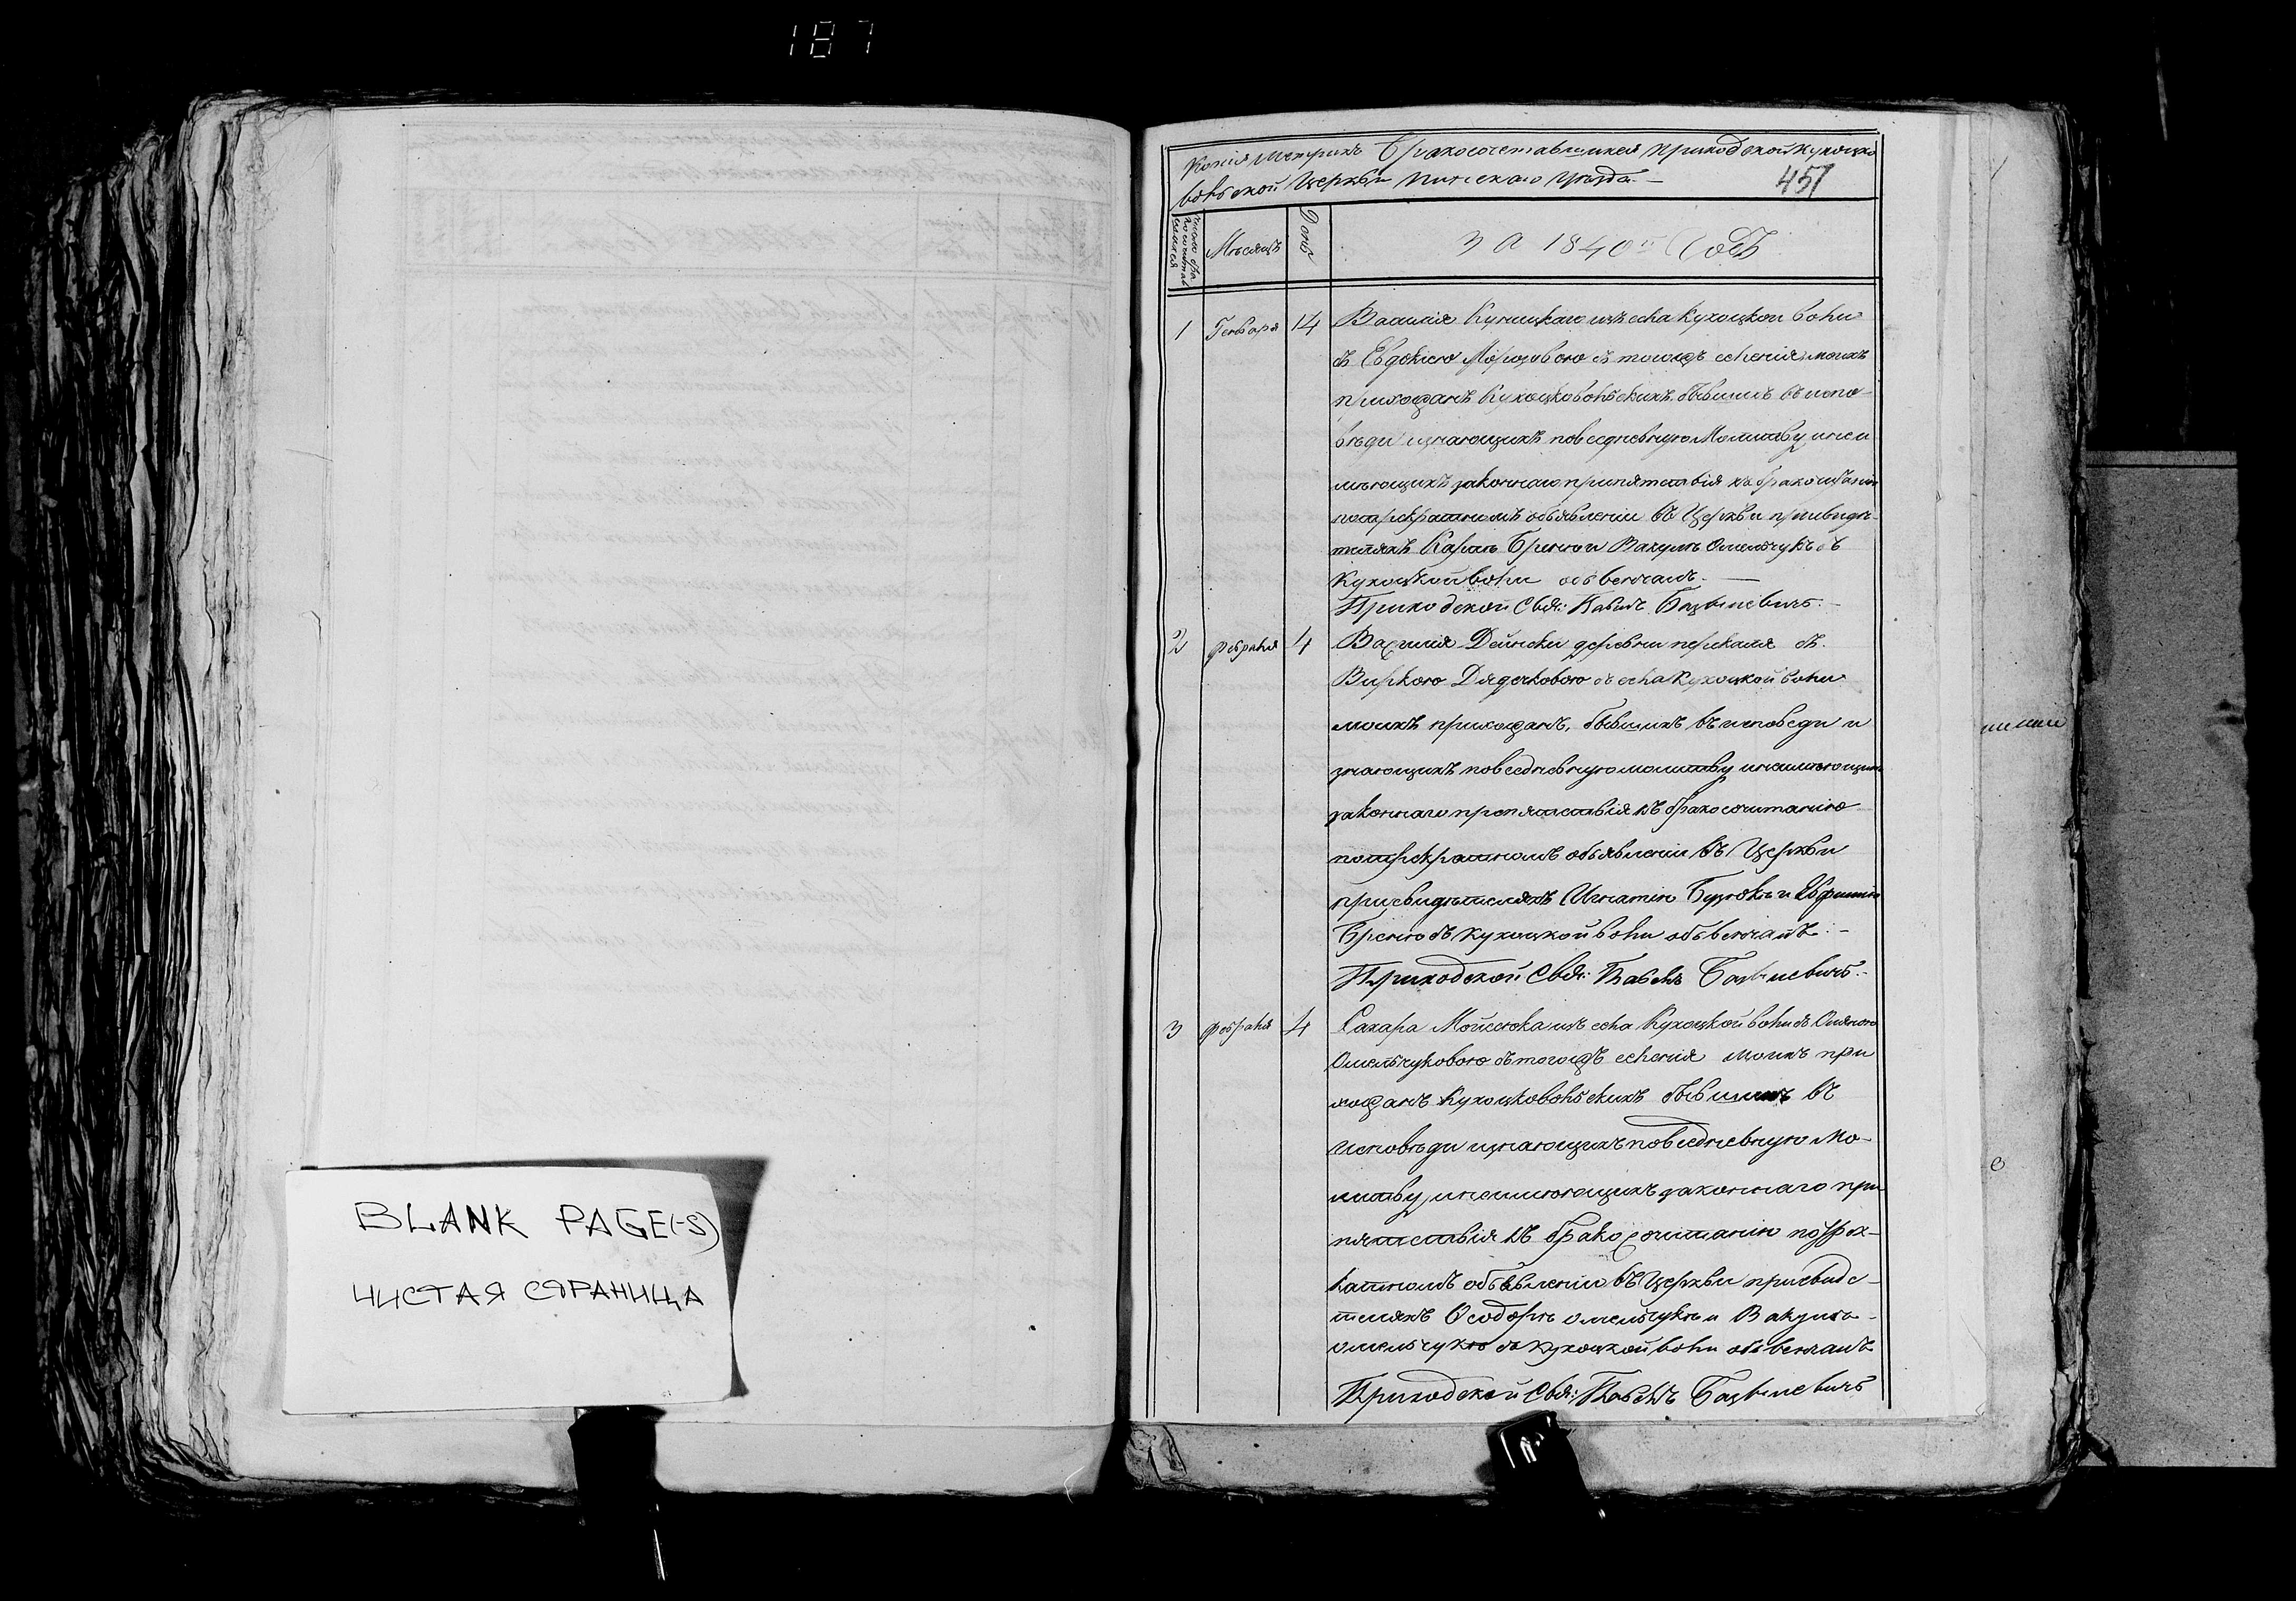 187
Копія Метрикъ Бракосочетавшихся Приходской Кухоцко
вольской Церкви Пинскаго Уѣзда.—
451
Число бра
косочетав
шихся
Мѣсяцъ
День
За 1840й Годъ
1 Генваря 14 Василія изъ села Кухоцкой воли
съ Евдокіею съ тогожъ селенія моихъ
прихожанъ Кухоцковольскихъ бывшихъ въ испо-
вѣди изнающихъ повседневную Молитву инеи
мѣющихъ законнаго припятствія къ бракосочетанію
потрекратномъ объявленіи въ Церкви присвидѣ-
теляхъ Вакулѣ Омельчукъ въ
Кухоцкой воли обвенчанъ.—
Приходской Свя: Павелъ Базылевичъ.—
2 Февраля 4 деревни съ
съ села Кухоцкой воли
моихъ прихожанъ, бывшихъ въ исповеди и
знающихъ повседневную молитву инеимеющихъ
законнаго препятствія къ бракосочетанію
потрекратномъ объявленіи въ Церкви
присвидѣтеляхъ Игнатію и
въ Кухоцкой воли обвенчанъ:—
Приходской Свя: Павелъ Базылевичъ.—
3 Февраля 4 Сахара изъ села Кухоцкой воли съ
Омельчуковою съ тогожъ селенія моихъ при
хожанъ Кухоцковольскихъ бывшихъ въ
исповѣди изнающихъ повседневную Мо-
литву, инеимеющихъ законнаго при
пятствія къ бракосочетанію потрек-
катномъ объявленіи въ Церкви присвиде-
теляхъ Ѳеодорѣ Омельчукѣ и Вакулѣ
омельчукѣ въ Кухоцкой воли обвенчанъ
Приходской Свя: Павелъ Базылевичъ
BLANK PAGE(-S)
ЧИСТАЯ СТРАНИЦА